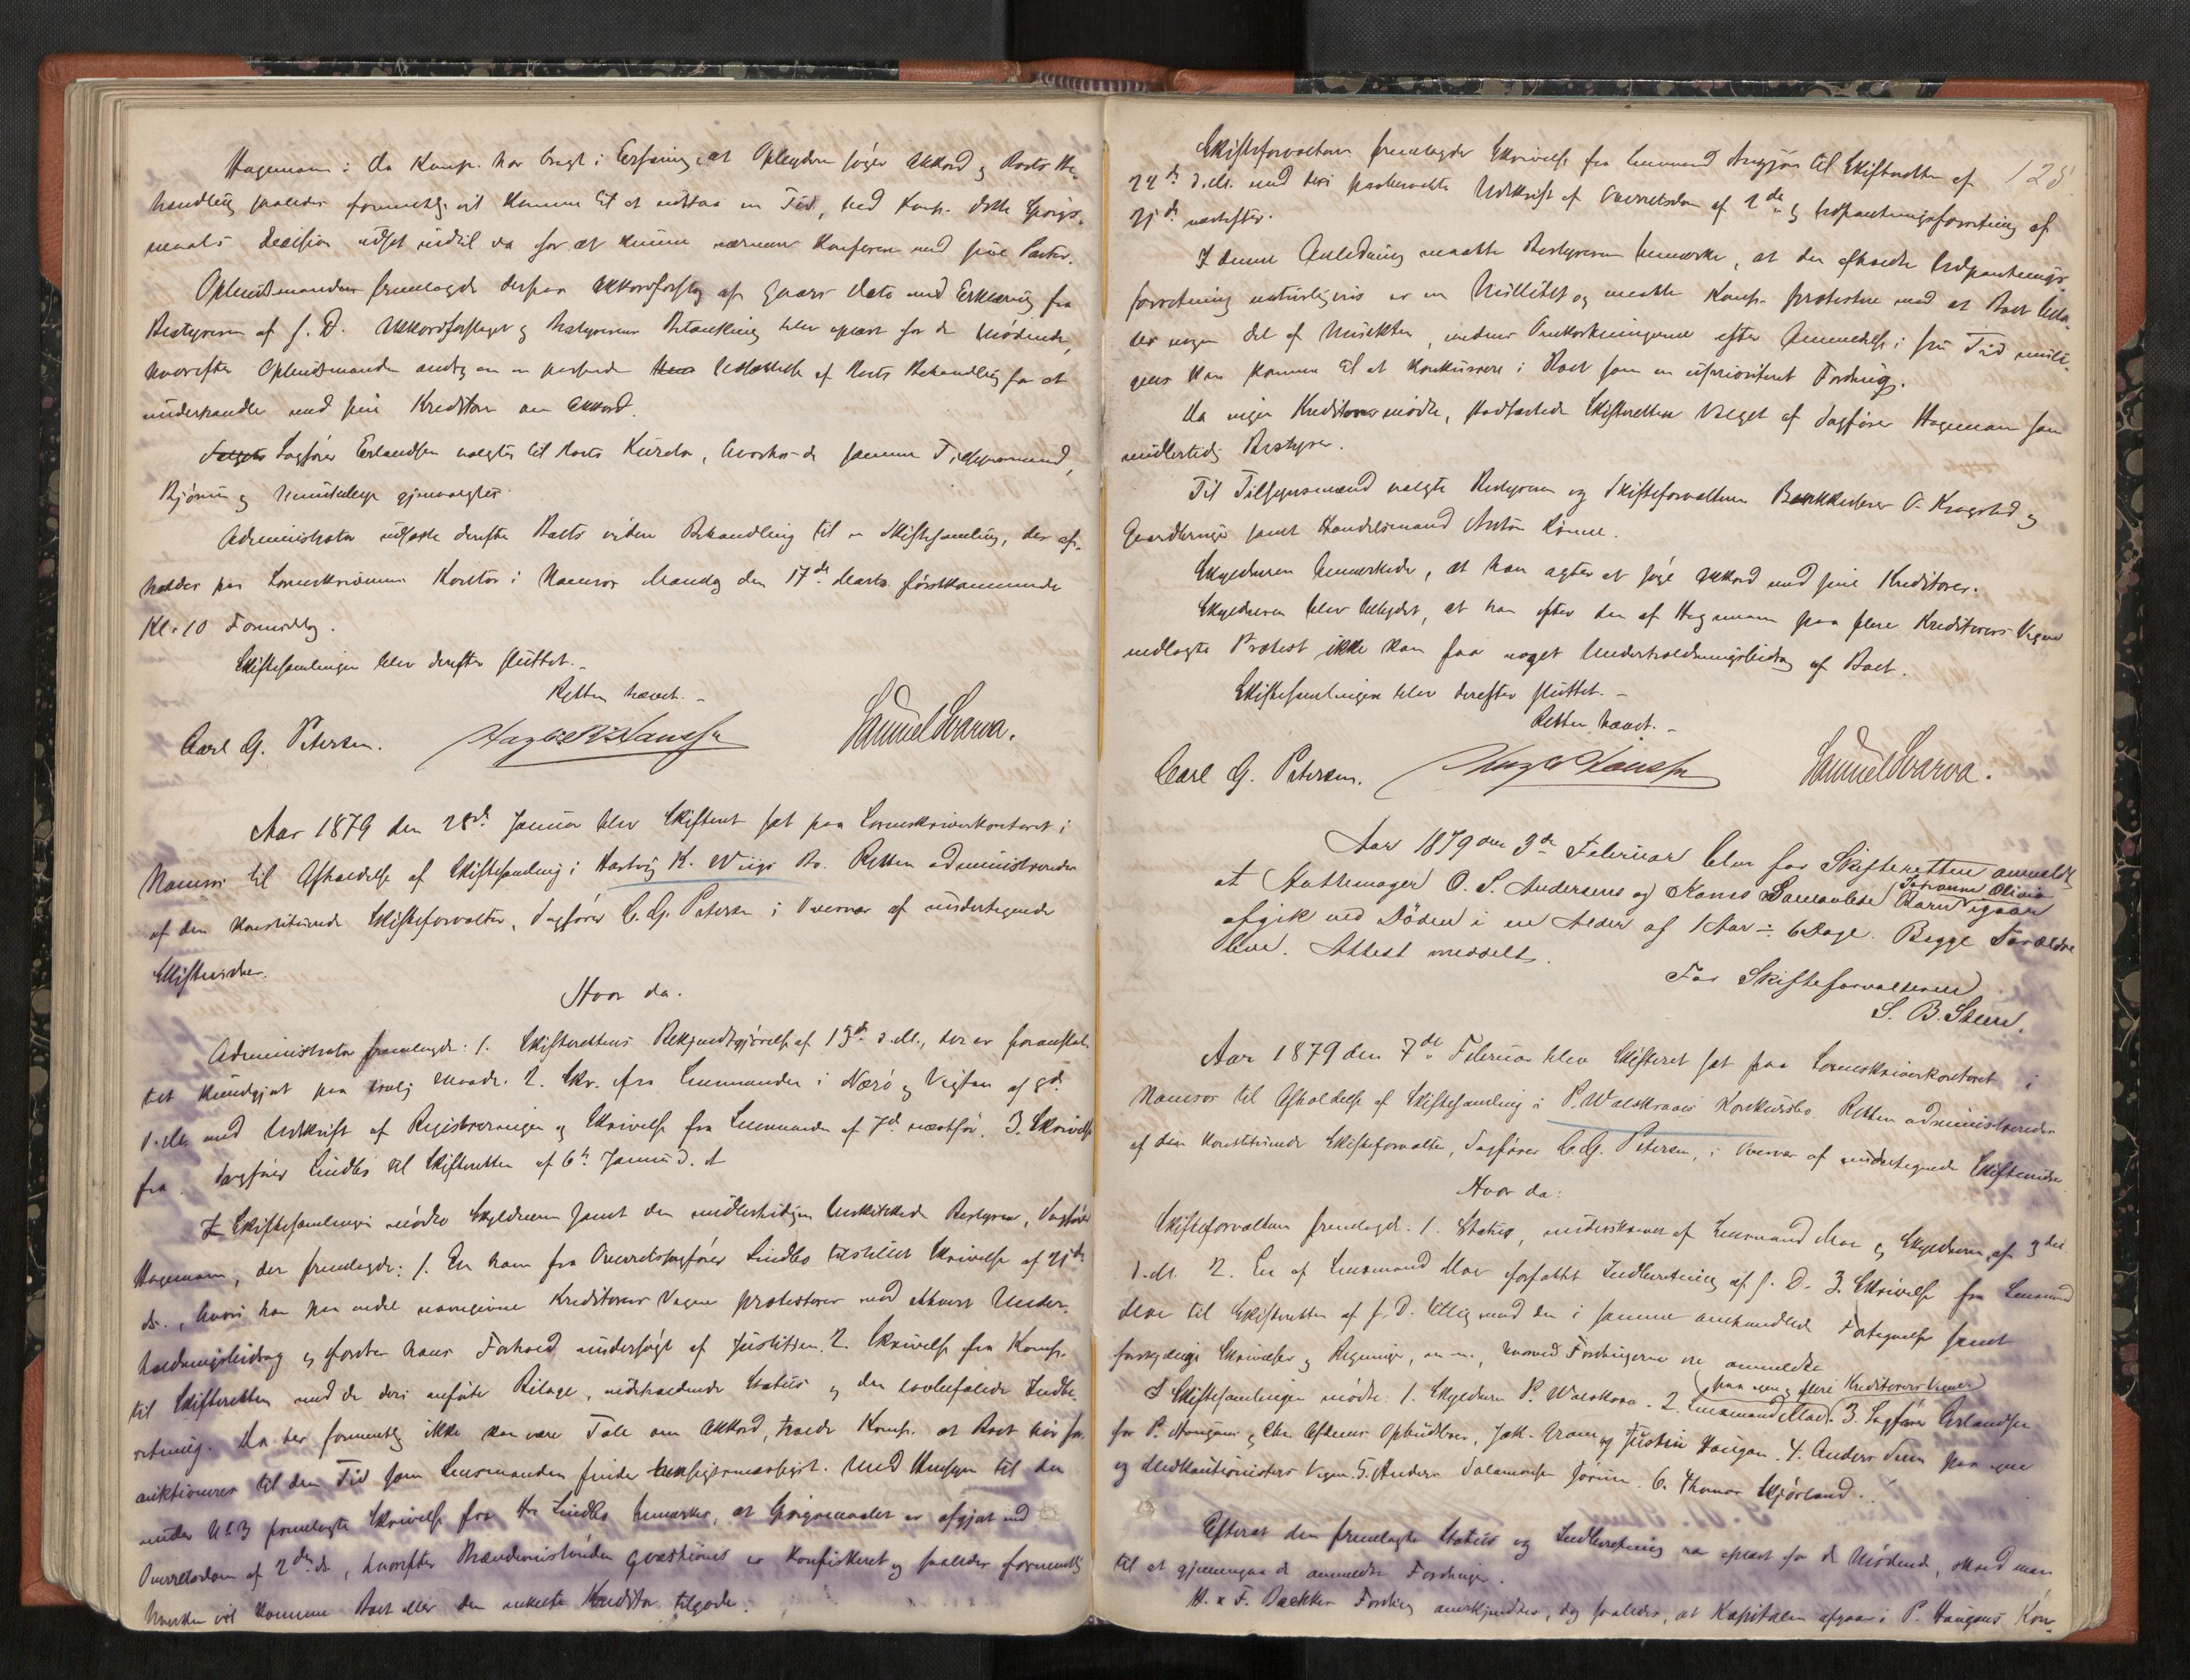 Hagemann: da Komp. har bragt i Erfaring, at Opbyderen søger Akkord og Boets Be-
handling saaledes formentlig vil komme til at udstaa en Tid, bad Komp. dette Spørgs-
maals Decision udsat indtil da for at kunne nærmere konferere med sine Parter.
Opbudsmanden fremlagde derpaa Akkordforslag af Gaars Dato med Erklæring fra
Bestyreren af s. D. Akkordforslaget og Bestyrerens Betænkning blev oplæst for de Mødende,
hvorefter Opbudsmanden androg om en passende Udsættelse af Boets Behandling for at
underhandle med sine Kreditorer om Akkord.
Sagfører Erlandsen valgtes til Boets Kurator, hvorhos de samme Tilsynsmænd,
Bjørum og gjenvalgtes.
Administrator udsatte derefter Boets videre Behandling til en Skiftesamling, der af-
holdes paa Sorenskriverens Kontor i Namsos Mandag den 17de Marts førstkommende
Kl. 10 Formiddag.
Skiftesamlingen blev derefter sluttet. –
Retten hævet. –
Carl G. Petersen. Hansen Samuel Svarva.
Aar 1879 den 28de Januar blev Skifteret sat paa Sorenskriverkontoret i
Namsos til Afholdelse af Skiftesamling i Hartvig K. Wiigs Bo. Retten administreredes
af den konstituerede Skifteforvalter, Sagfører C. G. Petersen i Overvær af undertegnede
Skiftevidner.
Hvor da.
Administrator fremlagde: 1. Skifterettens Bekjendtgjørelse af 13de d. M., der er foranstal-
tet kundgjort paa lovlig Maade. 2. Skr. fra Lensmanden i Nærø og Vigten af 9de
d. M. med Udskrift af Registreringen og Skrivelse fra Lensmanden af 7de næstfør. 3. Skrivelse
fra Sagfører Lindbo til Skifteretten af 6te Januar d. A.
I Skiftesamlingen mødte Skyldneren samt den midlertidigen beskikkede Bestyrer, Sagfører
Hagemann, der fremlagde: 1. En ham fra Overretssagfører Lindbo tilstillet Skrivelse af 21de
ds., hvori han paa endel navngivne Kreditorers Vegne protesterer mod ethvert Under-
holdningsbidrag og fordrer hans Forhold undersøgt af Justitsen. 2. Skrivelse fra Komp.
til Skifteretten med de deri anførte Bilage, indeholdende Status og den lovbefalede Indbe-
retning. Da her formentlig ikke kan være Tale om Akkord, troede Komp. at Boet bør for-
auktioneres til den Tid som Lensmanden finder hensigtsmæssigst. Med Hensyn til den
under No 3 fremlagte Skrivelse fra Hr Lindbo bemærkes, at Spørgsmaalet er afgjort ved
Overretsdom af 2den ds., hvorefter Brændevinstønden qvæstionis er konfiskeret og saaledes formentlig
hverken vil komme Boet eller den enkelte Kreditor tilgode.
128
Skifteforvalteren fremlagde Skrivelse fra Lensmand til Skifteretten af
24de d. M. med deri paaberaabte Udskrift af Overretsdom af 2de og Udpantningsforretning af
21de næstefter.
I denne Anledning maatte Bestyreren bemærke, at den afholdte Udpantnings-
forretning naturligvis er en Nullitet og maatte Komp. protestere mod at Boet beta-
ler nogen Del af Mulkten, medens Omkostningerne efter Anmeldelse i sin Tid muli-
gens kan komme til at konkurrere i Boet som en uprioriteret Fordring.
Da ingen Kreditorer mødte, stadfæstede Skifteretten Valget af Sagfører Hagemann som
midlertidig Bestyrer.
Til Tilsynsmænd valgte Bestyreren og Skifteforvalteren Bankkasserer O. Krogstad og
samt Handelsmand Anton Rønne.
Skyldneren bemærkede, at han agter at søge Akkord med sine Kreditorer.
Skyldneren blev betydet, at han efter den af Hagemann paa flere Kreditorers Vegne
nedlagte Protest ikke kan faa noget Underholdningsbidrag af Boet.
Skiftesamlingen blev derefter sluttet. –
Retten hævet. –
Carl G. Petersen. Hansen Samuel Svarva.
Aar 1879 den 3de Februar blev for Skifteretten anmeldt,
at Hattemager O. S. Andersens og Kones Barn Johanna Olivia igaar
afgik ved Døden i en Alder af 1 Aar ÷ 6 Dage. Begge Forældre
leve. Attest meddelt.
For Skifteforvalteren
S. B. Steen.
Aar 1879 den 7de Februar blev Skifteret sat paa Sorenskriverkontoret i
Namsos til Afholdelse af Skiftesamling i P. Walskraas Konkursbo. Retten administreredes
af den konstituerede Skifteforvalter, Sagfører C. G. Petersen, i Overvær af undertegnede Skiftevidner
Hvor da:
Skifteforvalteren fremlagde: 1. Status, underskreven af Lensmand Moe og Skyldneren af 3die
d. M. 2. En af Lensmand Moe forfattet Indberetning af s. D. 3. Skrivelse fra Lensmand
Moe til Skifteretten af s. D. tillig med den i samme omhandlede Fortegnelse samt
forskjellige Skrivelser og Regninger, m. m., hvorved Fordringerne ere anmeldte
I Skiftesamlingen mødte: 1. Skyldneren P. Walskraa. 2. Lensmand Moe paa egne og flere Kreditorers Vegne. 3. Sagfører Erlandsen
for P. Haugans og Opbudsboer, Jak. og Justin Haugan. 4. Anders paa egne
og Medkautionisters Vegne. 5. Anders Salamonsen 6. Thomas
Efterat den fremlagte Status og Indberetning var oplæst for de Mødende, skred man
til at gjennemgaa de anmeldte Fordringer.
H. & F. Bachkes Fordring anerkjendtes, dog saaledes, at Kapitalen afgaar i P. Haugans Kon-